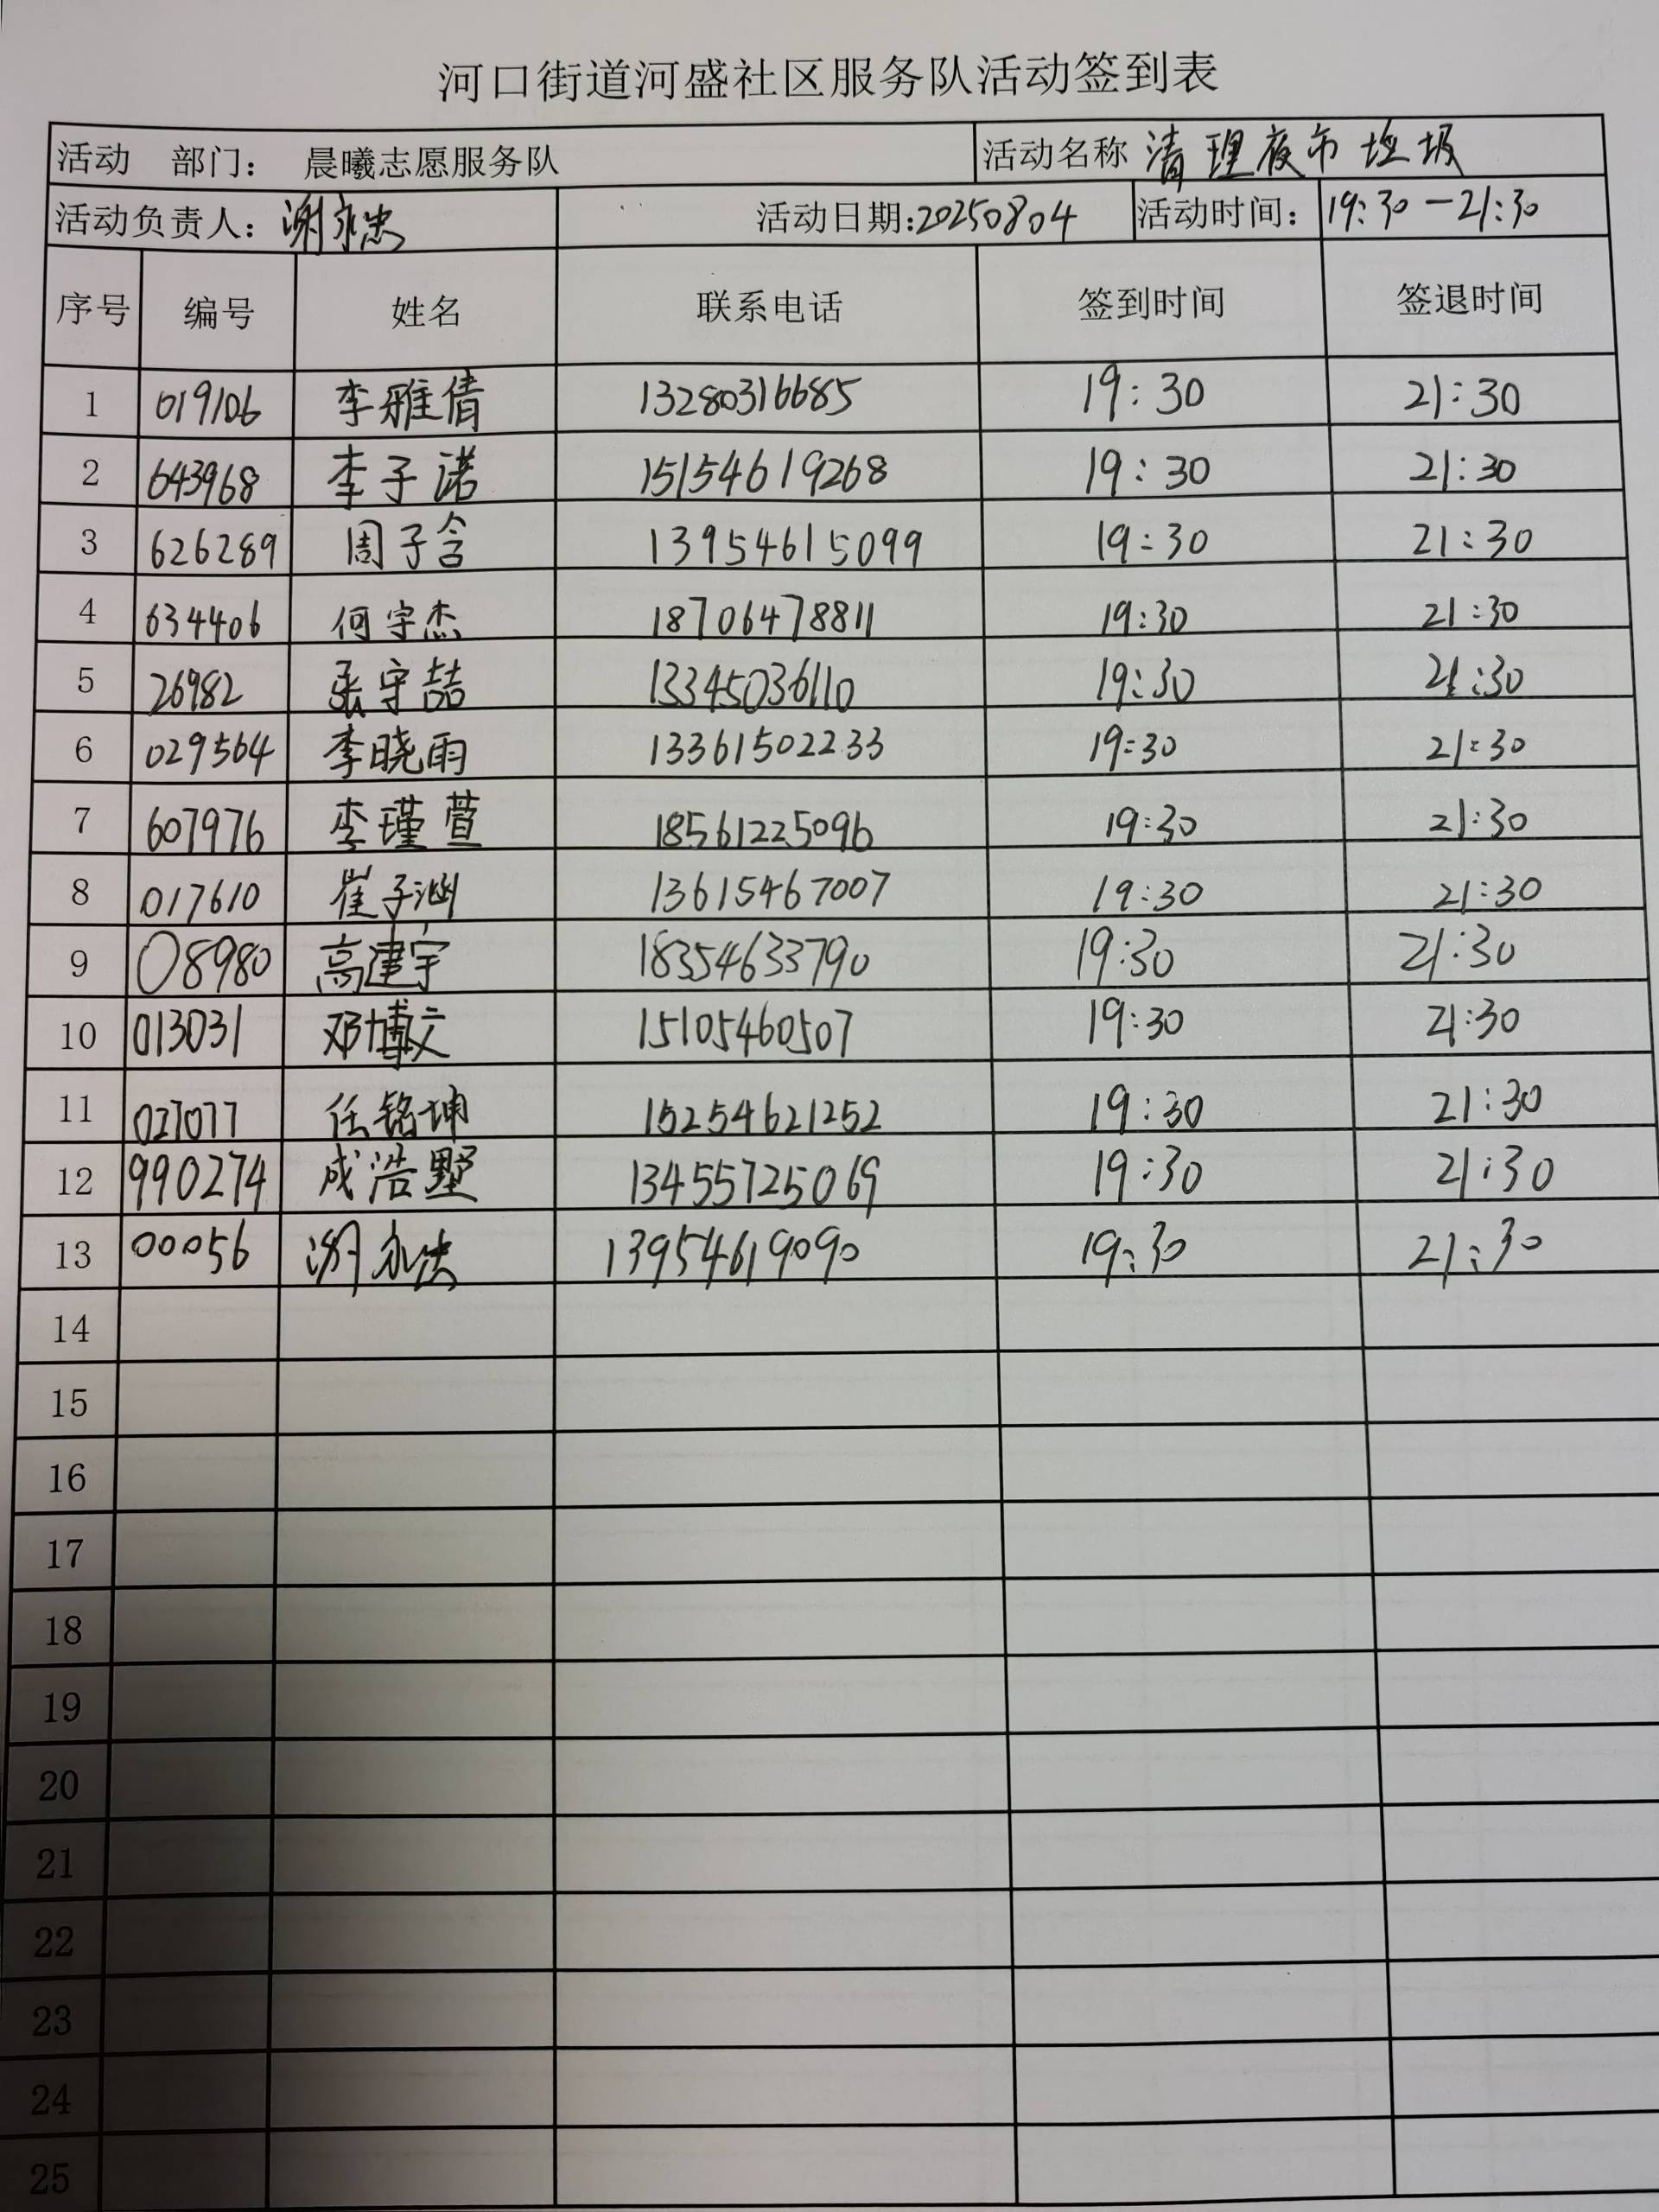 河口街道河盛社区服务队活动签到表
活动 部门： 晨曦志愿服务队 活动名称 清理夜市垃圾
活动负责人：谢永忠 活动日期:20250804 活动时间：19:30-21:30
序号 编号 姓名 联系电话 签到时间 签退时间
1 019106 李雅倩 13280316685 19:30 21:30
2 643968 李子诺 15154619268 19:30 21:30
3 626289 周子含 13954615099 19:30 21:30
4 634406 何宇杰 18706478811 19:30 21:30
5 26982 张守喆 13345036110 19:30 21:30
6 029564 李晓雨 13361502233 19:30 21:30
7 607976 李瑾萱 18561225096 19:30 21:30
8 017610 崔子涵 13615467007 19:30 21:30
9 08980 高建宇 18354633790 19:30 21:30
10 013031 邓博文 15105460507 19:30 21:30
11 027077 任铭坤 15254621252 19:30 21:30
12 990274 成浩墅 13455725069 19:30 21:30
13 00056 谢永忠 13954619090 19:30 21:30
14
15
16
17
18
19
20
21
22
23
24
25